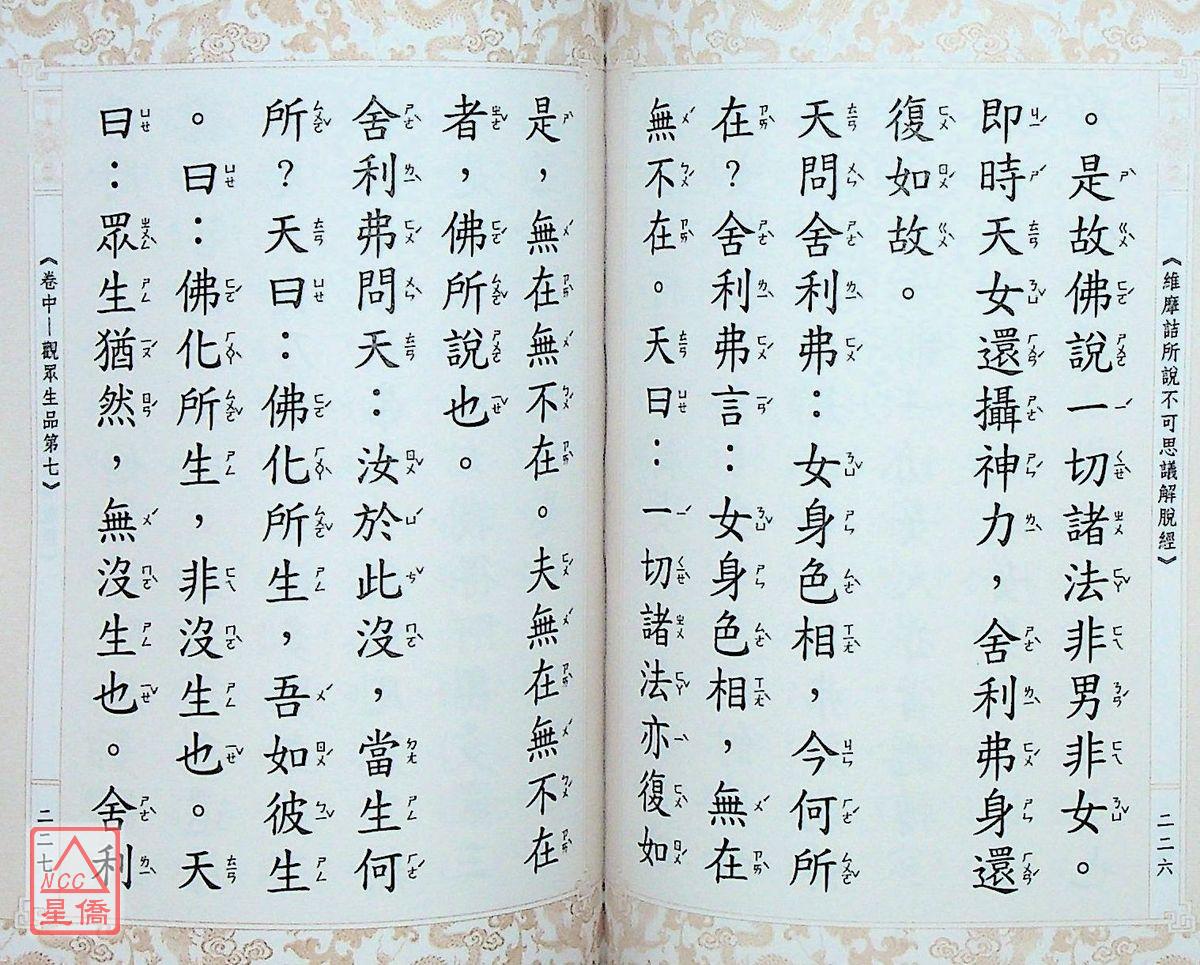 《維摩詰所說不可思議解脫經》
二二六
。是故佛說一切諸法非男非女。
即時天女還攝神力，舍利弗身還
復如故。
天問舍利弗：女身色相，今何所
在？舍利弗言：女身色相，無在
無不在。天曰：一切諸法亦復如
是，無在無不在。夫無在無不在
者，佛所說也。
舍利弗問天：汝於此沒，當生何
所？天曰：佛化所生，吾如彼生
。曰：佛化所生，非沒生也。天
曰：眾生猶然，無沒生也。舍利
《卷中—觀眾生品第七》
二二七
NCC
星僑